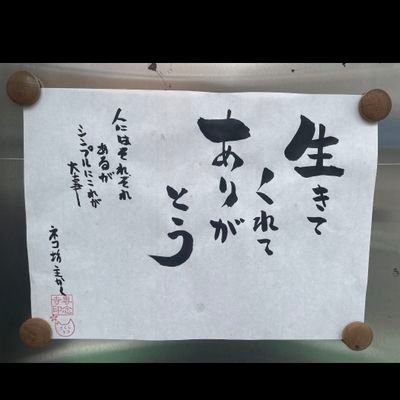 生きて
くれて
ありが
とう
人にはそれぞれ
あるが
シンプルにこれが
大事
ネコ坊主かく
専念
寺印